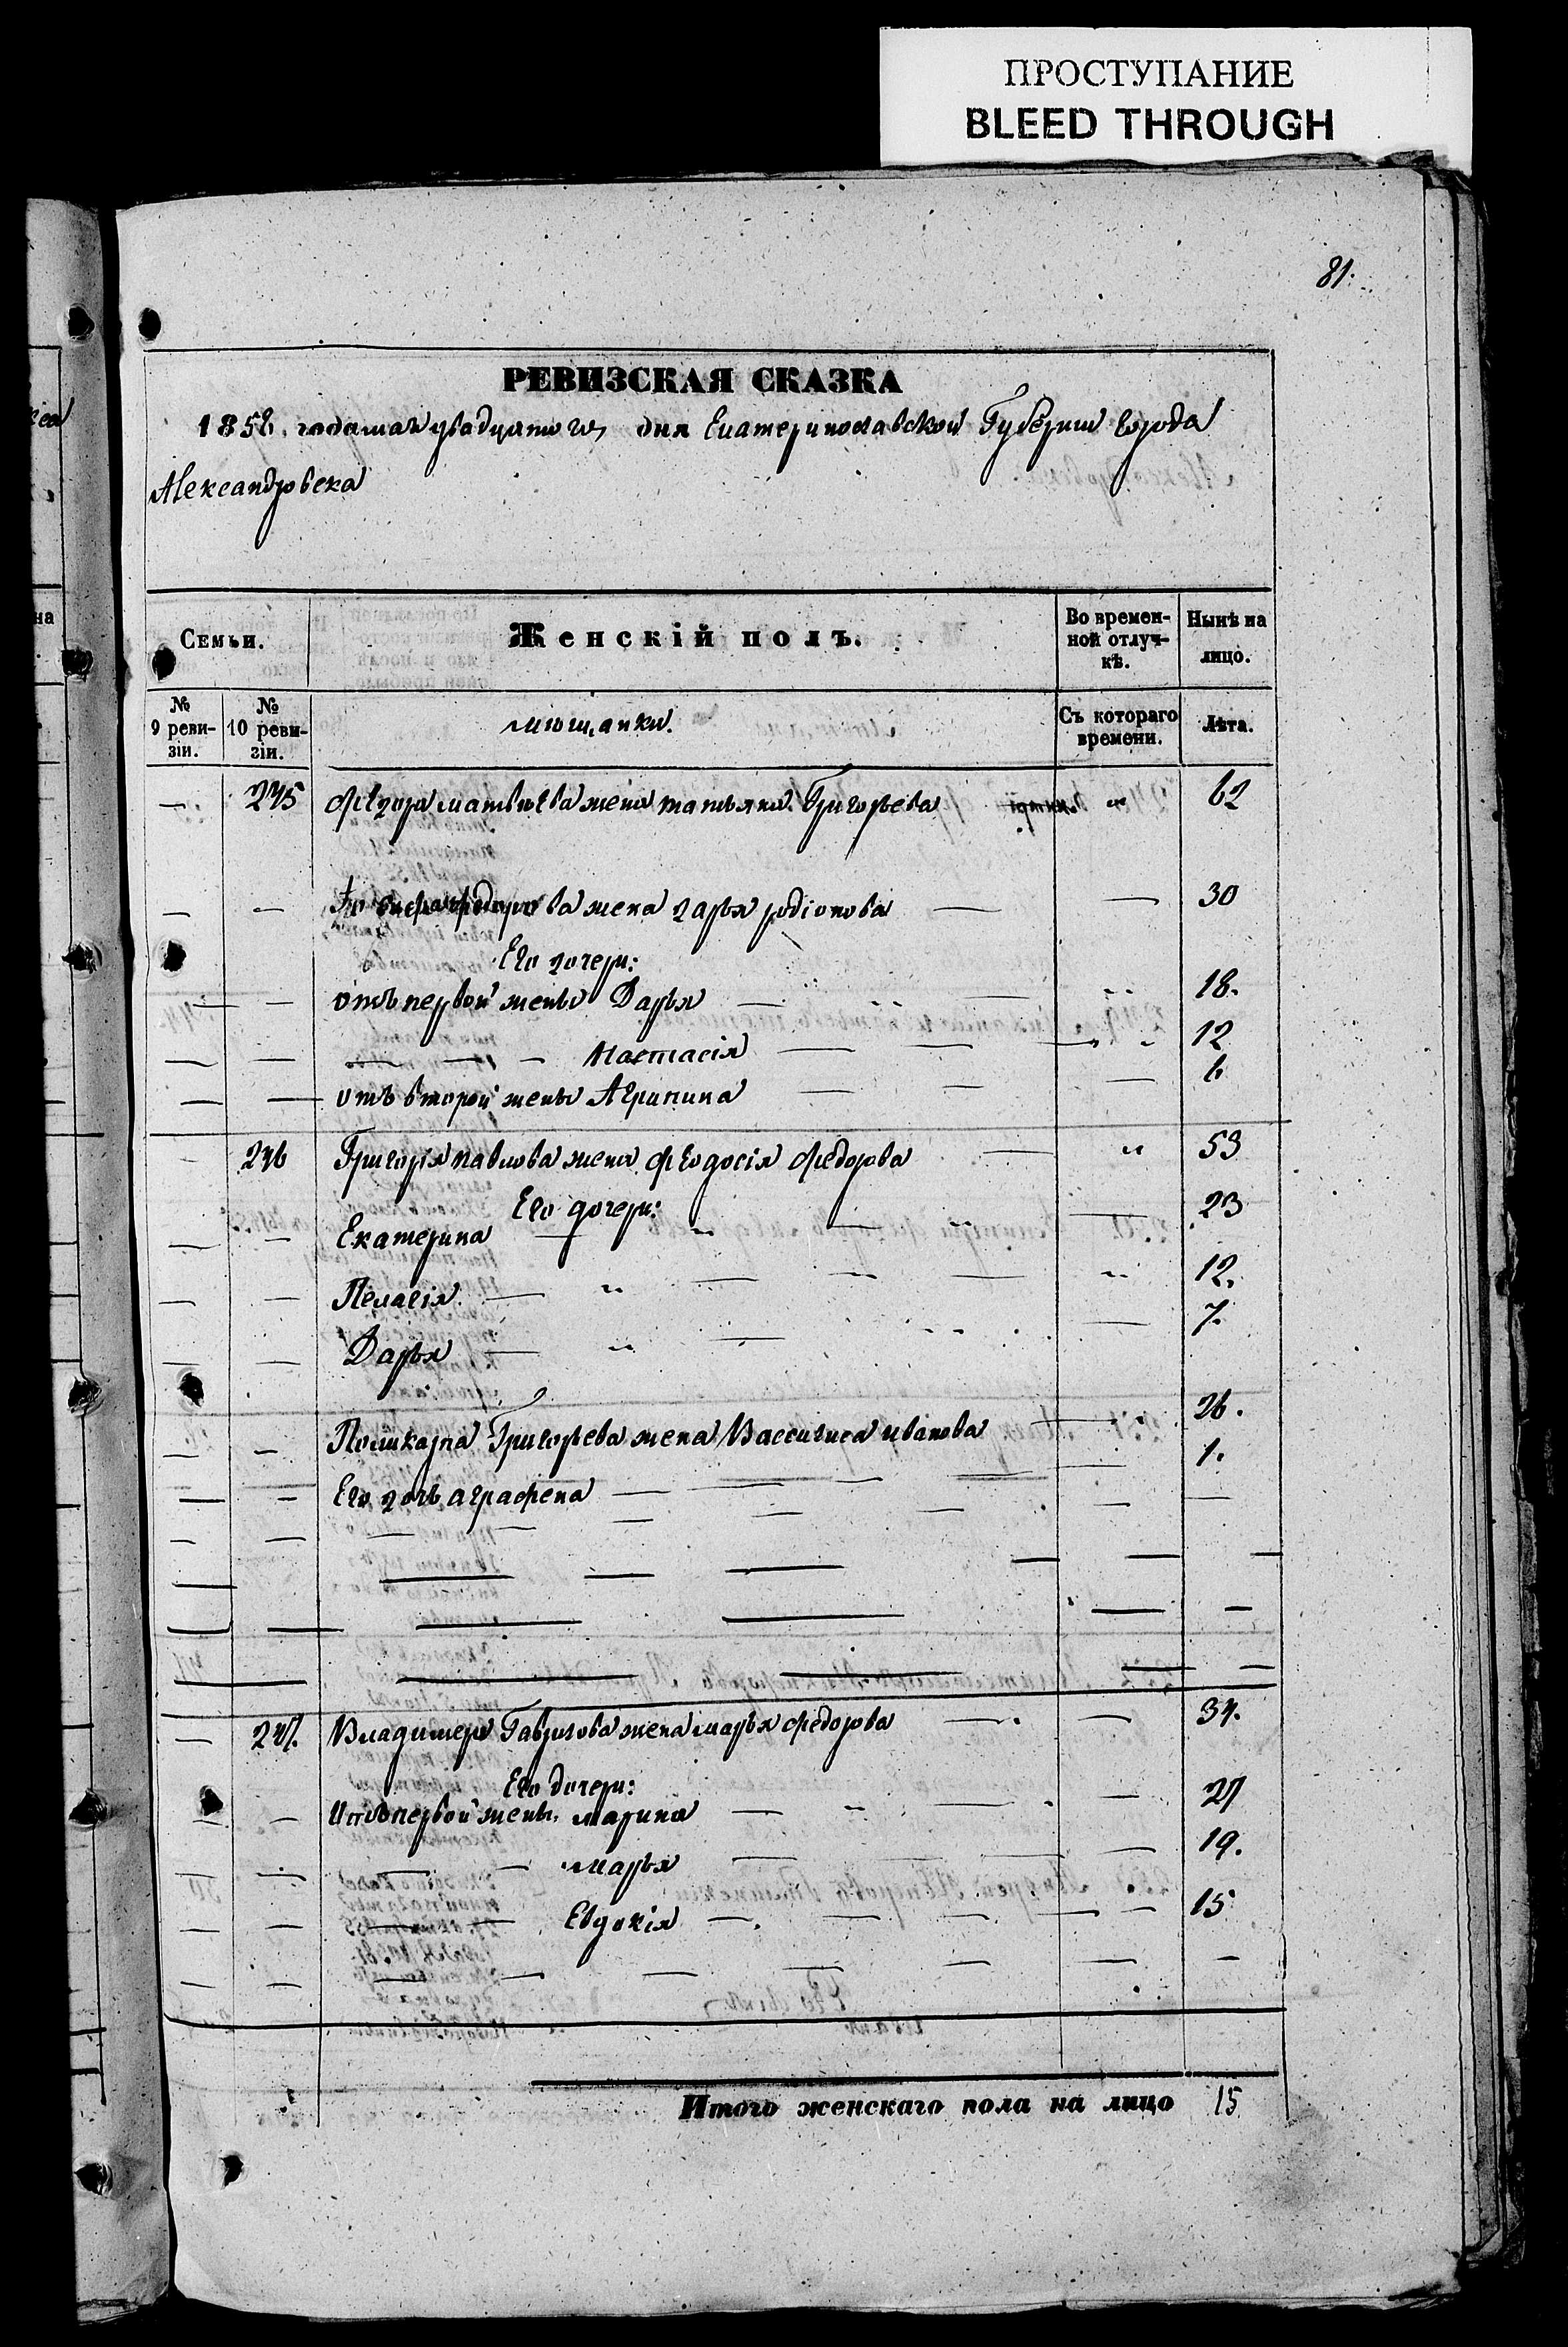 ПРОСТУПАНИЕ
BLEED THROUGH
81.
РЕВИЗСКАЯ СКАЗКА
1858 года мая двадцатого дня Екатеринославской Губернии города
Александровска
Семьи.
Женскій полъ.
Во временной отлучкѣ.
Нынѣ на лицо.
№ 9 ревизіи.
№ 10 ревизіи.
мѣщанки.
Съ котораго времени.
Лѣта.
245 Федора матвѣева жена татьяна Григорьева 62
федорова жена дарья родіонова 30
Его дочери:
отъ первой жены Дарья 18.
Настасія 12
отъ второй жены Агрипина 6
246 Григорія павлова жена феодосія федорова 53
Его дочери:
Екатерина 23
Пелагія 12.
Дарья 7.
Поликарпа Григорьева жена Вассилиса иванова 26.
Его дочь аграфена 1.
247. Владимера Гаврилова жена марья федорова 37.
Его дочери:
Отъ первой жены марина 21
марья 19.
Евдокія 15
Итого женскаго пола на лицо 15